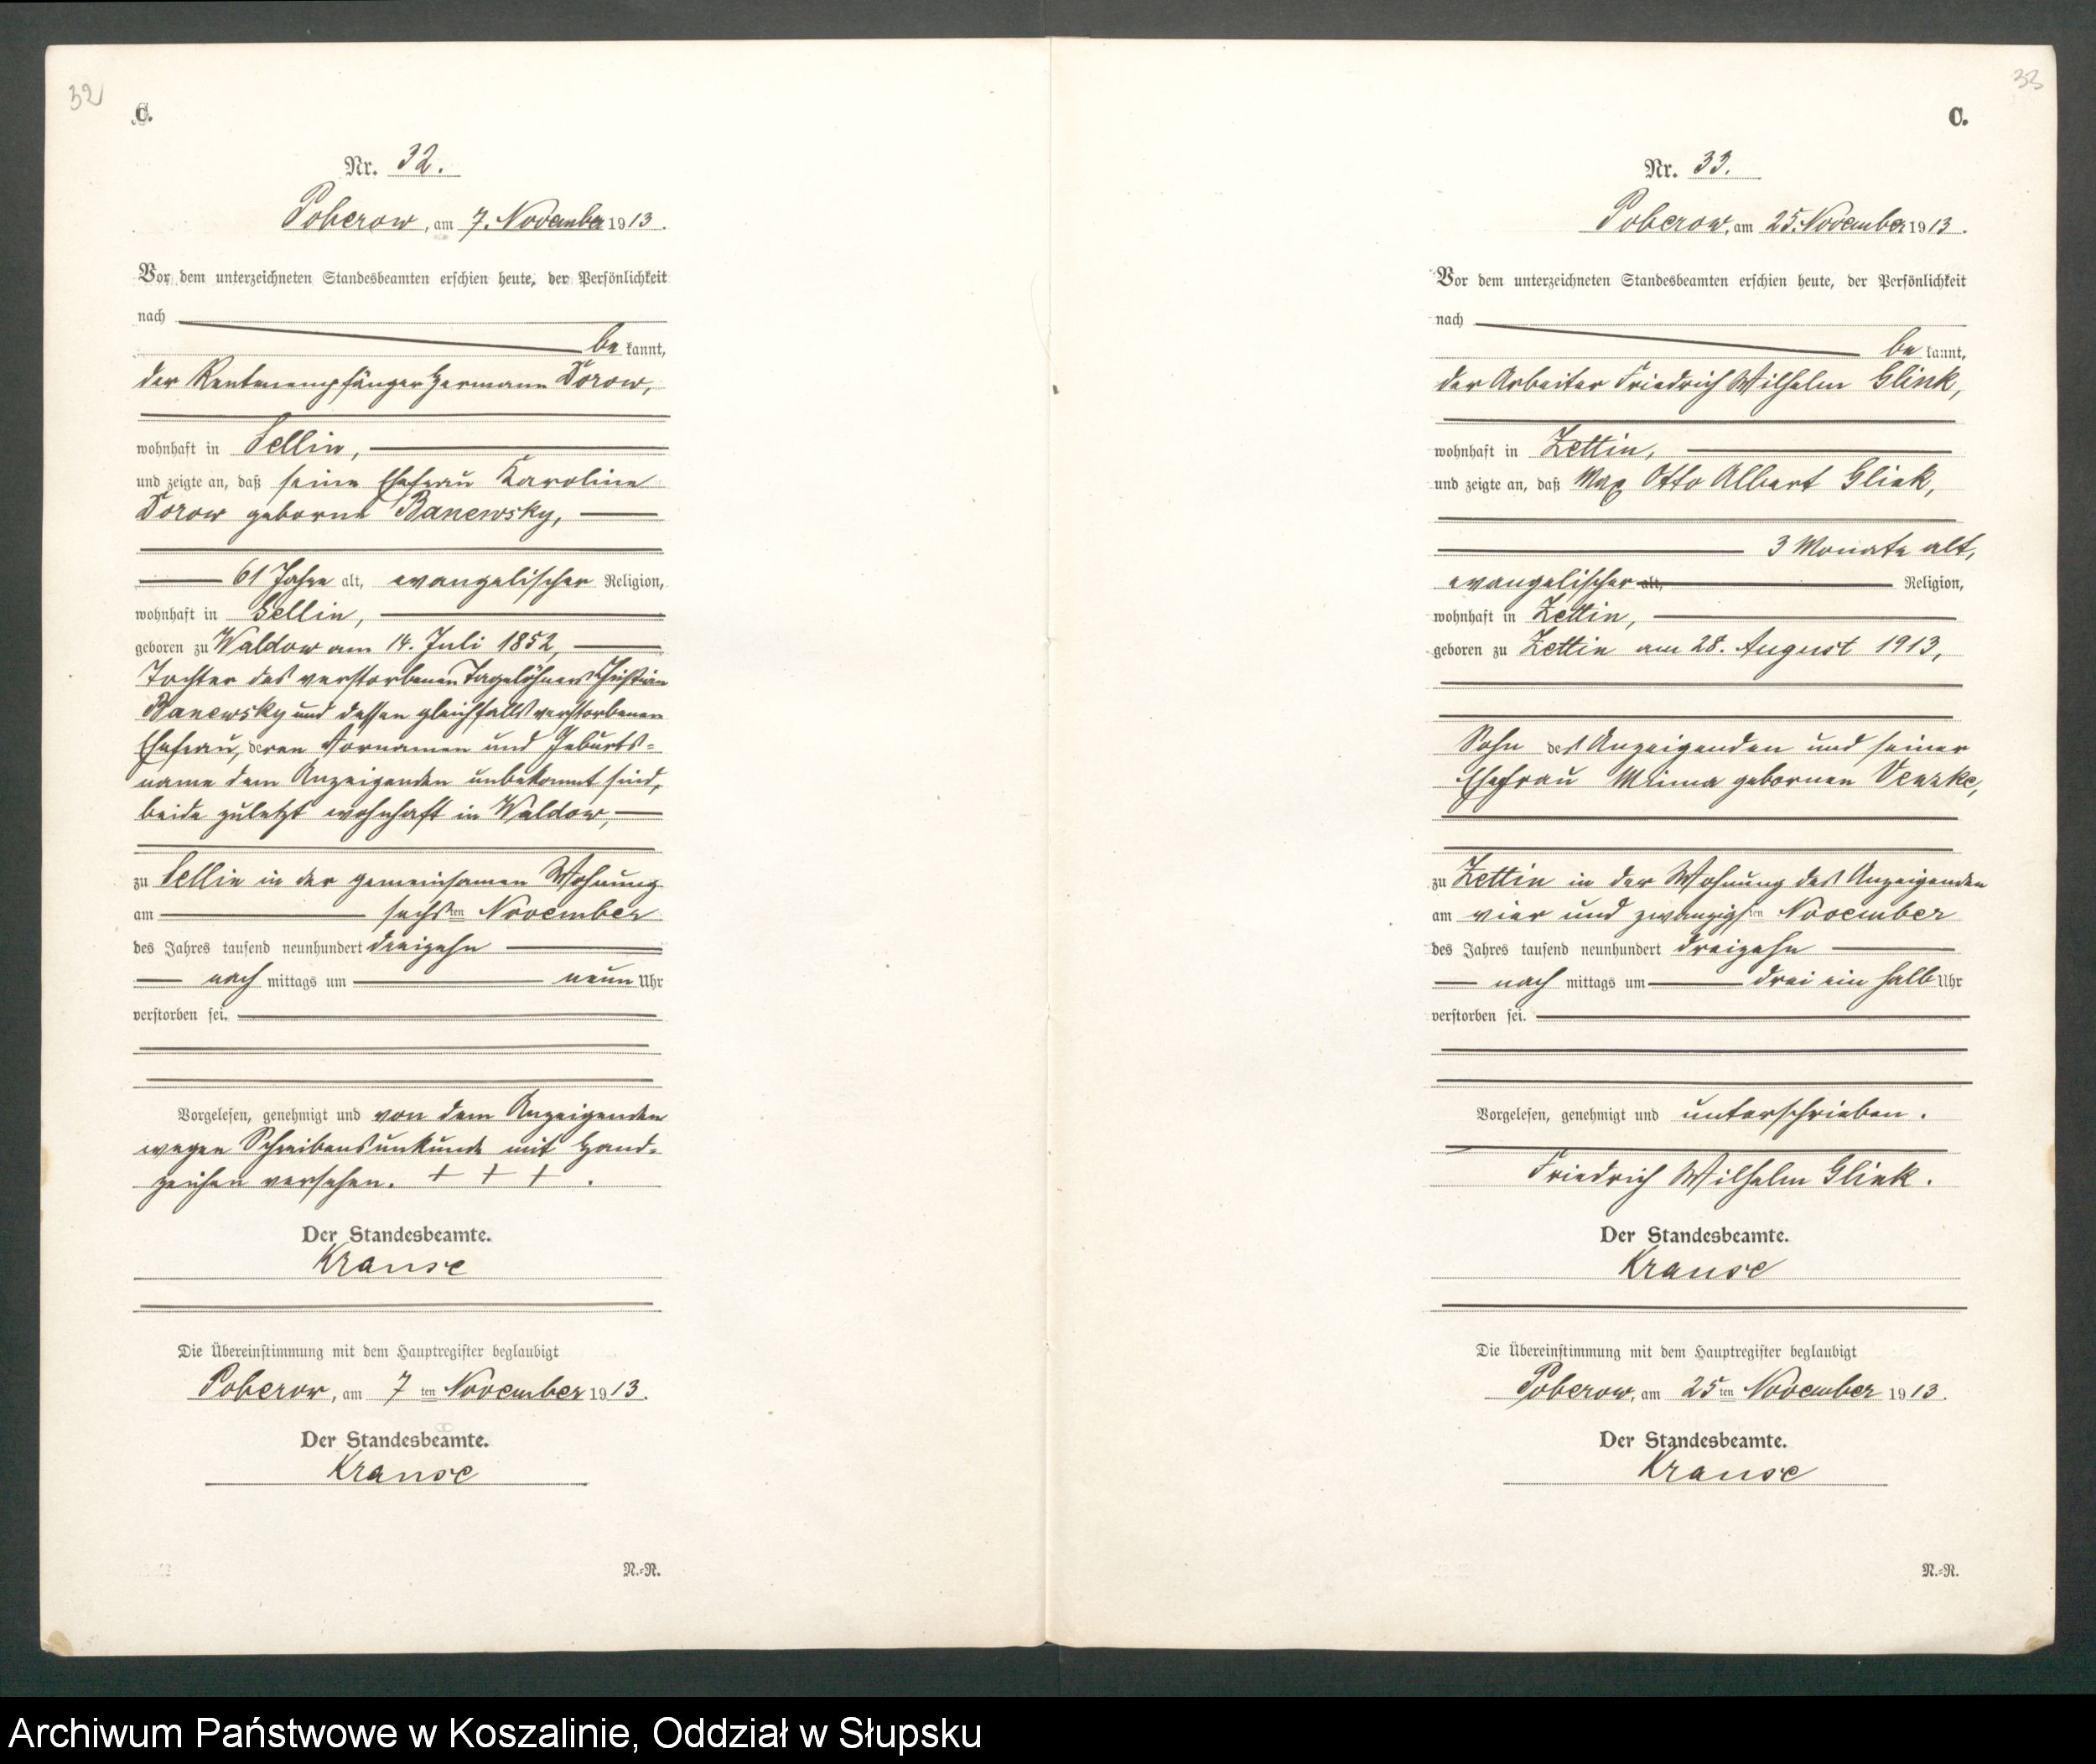 32
C.
Nr. 32.
Poberow, am 7. November 1913.
Vor dem unterzeichneten Standesbeamten erschien heute, der Persönlichkeit
nach
be kannt,
der Rentenempfänger Hermann Dorow,
wohnhaft in Sellin,
und zeigte an, daß seine Ehefrau Karoline
Dorow geborne Banewsky,
61 Jahre alt, evangelischer Religion,
wohnhaft in Sellin,
geboren zu Waldow am 14. Juli 1852,
Tochter des verstorbenen Tagelöhners Christian
Banewsky und dessen gleichfalls verstorbenen
Ehefrau, deren Vornamen und Geburts=
name dem Anzeigenden unbekannt sind,
beide zuletzt wohnhaft in Waldow,
zu Sellin in der gemeinsamen Wohnung
am sechsten November
des Jahres tausend neunhundert dreizehn
nach mittags um neun Uhr
verstorben sei.
Vorgelesen, genehmigt und von dem Anzeigenden
wegen Schreibensunkunde mit Hand=
zeichen versehen. + + + .
Der Standesbeamte.
Krause
Die Übereinstimmung mit dem Hauptregister beglaubigt
Poberow, am 7 ten November 1913.
Der Standesbeamte.
Krause
N.=R.
33
C.
Nr. 33.
Poberow, am 25. November 1913.
Vor dem unterzeichneten Standesbeamten erschien heute, der Persönlichkeit
nach
be kannt,
der Arbeiter Friedrich Wilhelm Glink,
wohnhaft in Zettin,
und zeigte an, daß Max Otto Albert Glink,
3 Monate alt,
evangelischer alt, Religion,
wohnhaft in Zettin,
geboren zu Zettin am 28. August 1913,
Sohn des Anzeigenden und seiner
Ehefrau Minna gebornen Venzke,
zu Zettin in der Wohnung des Anzeigenden
am vier und zwanzigsten November
des Jahres tausend neunhundert dreizehn
nach mittags um drei ein halb Uhr
verstorben sei.
Vorgelesen, genehmigt und unterschrieben.
Friedrich Wilhelm Glink.
Der Standesbeamte.
Krause
Die Übereinstimmung mit dem Hauptregister beglaubigt
Poberow, am 25 ten November 1913.
Der Standesbeamte.
Krause
N.=R.
Archiwum Państwowe w Koszalinie, Oddział w Słupsku